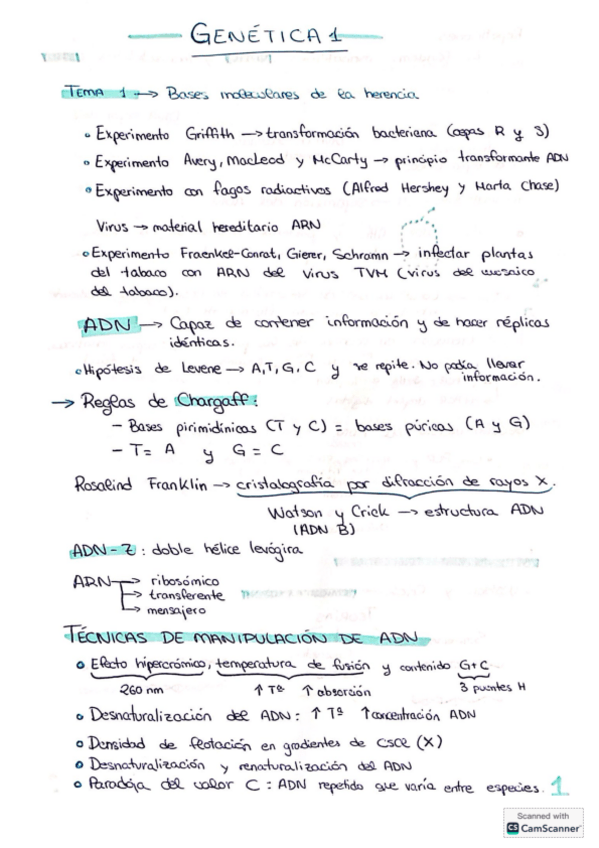 GENÉTICA 1
TEMA 1 → Bases moleculares de la herencia
• Experimento Griffith → transformación bacteriana (cepas R y S)
• Experimento Avery, MacLeod y McCarty → principio transformante ADN
• Experimento con fagos radiactivos (Alfred Hershey y Marta Chase)
Virus → material hereditario ARN
• Experimento Fraenkel-Conrat, Gierer, Schramn → infectar plantas
del tabaco con ARN del virus TVM (virus del mosaico
del tabaco).
ADN → Capaz de contener información y de hacer réplicas
idénticas.
• Hipótesis de Levene → A, T, G, C y se repite. No podía llevar
información.
→ Reglas de Chargaff:
- Bases pirimidínicas (T y C) = bases púricas (A y G)
- T = A y G = C
Rosalind Franklin → cristalografía por difracción de rayos X.
Watson y Crick → estructura ADN
(ADN B)
ADN-Z: doble hélice levógira
ARN → ribosómico
→ transferente
→ mensajero
TÉCNICAS DE MANIPULACIÓN DE ADN
• Efecto hipercrómico, temperatura de fusión y contenido G+C
260 nm ↑ Tª ↑ absorción 3 puentes H
• Desnaturalización del ADN: ↑ Tª ↑ concentración ADN
• Densidad de flotación en gradientes de CsCl (X)
• Desnaturalización y renaturalización del ADN
• Paradoja del valor C: ADN repetido que varía entre especies. 1
Scanned with
CS CamScanner